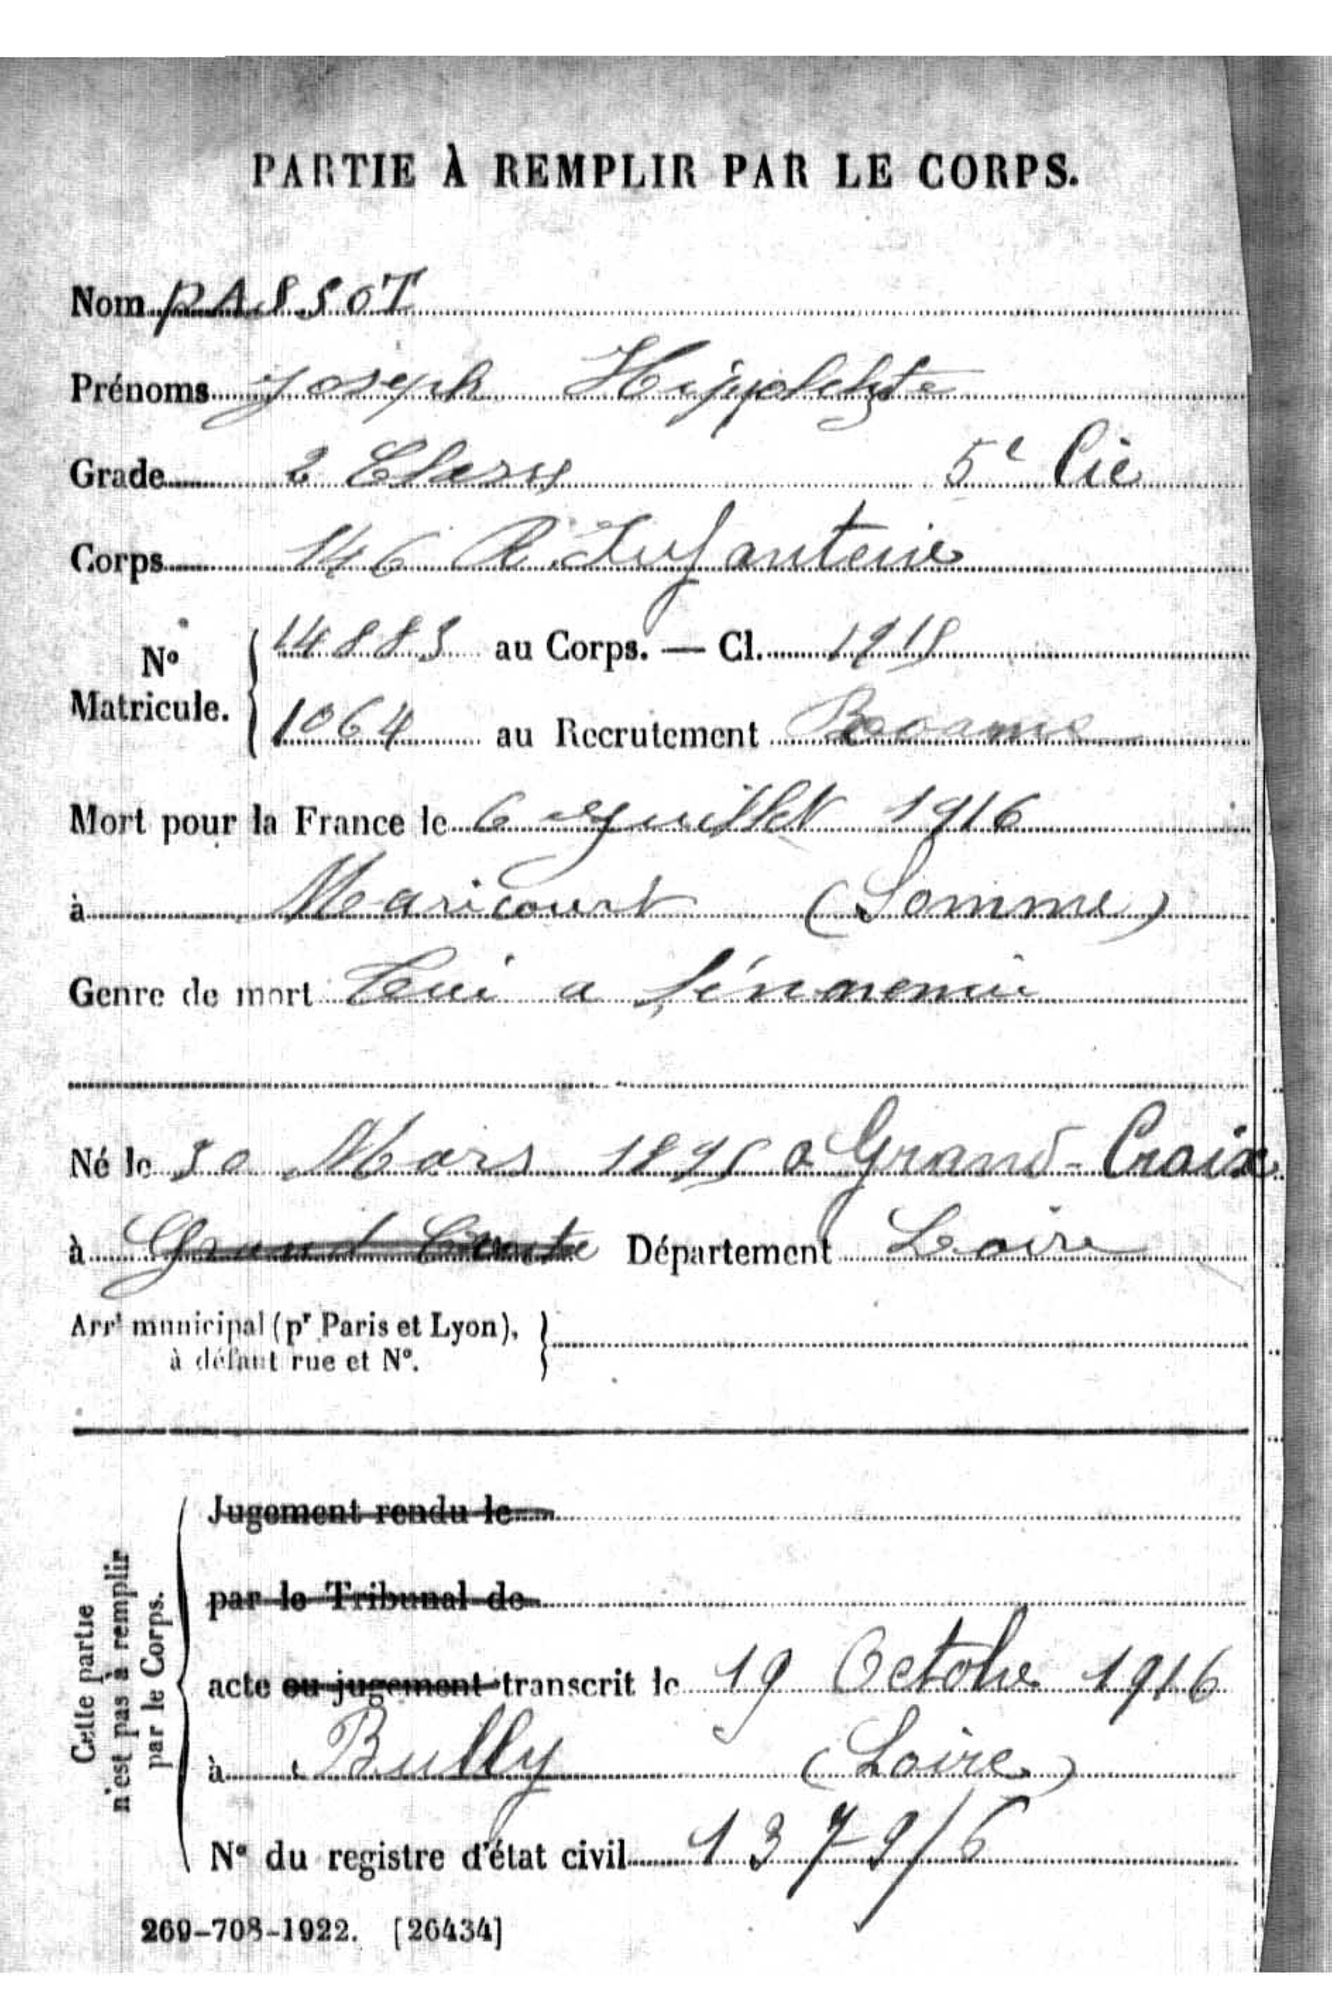 PARTIE À REMPLIR PAR LE CORPS.
Nom PASSOT
Prénoms Joseph Hippolyte
Grade 2 Class 5e Cie
Corps 146 R. Infanterie
No Matricule. 14883 au Corps. — Cl. 1915
1064 au Recrutement Roanne
Mort pour la France le 6 Juillet 1916
à Maricourt (Somme)
Genre de mort Tué a l'énnemie
Né le 30 Mars 1895 a Grand-Croix
à Grand Croix Département Loire
Arrt municipal (pr Paris et Lyon),
à défaut rue et No.
Cette partie
n'est pas à remplir
par le Corps.
Jugement rendu le
par le Tribunal de
acte ou jugement transcrit le 19 Octobre 1916
à Bully (Loire)
No du registre d'état civil 1379/6
269-708-1922. [26434]